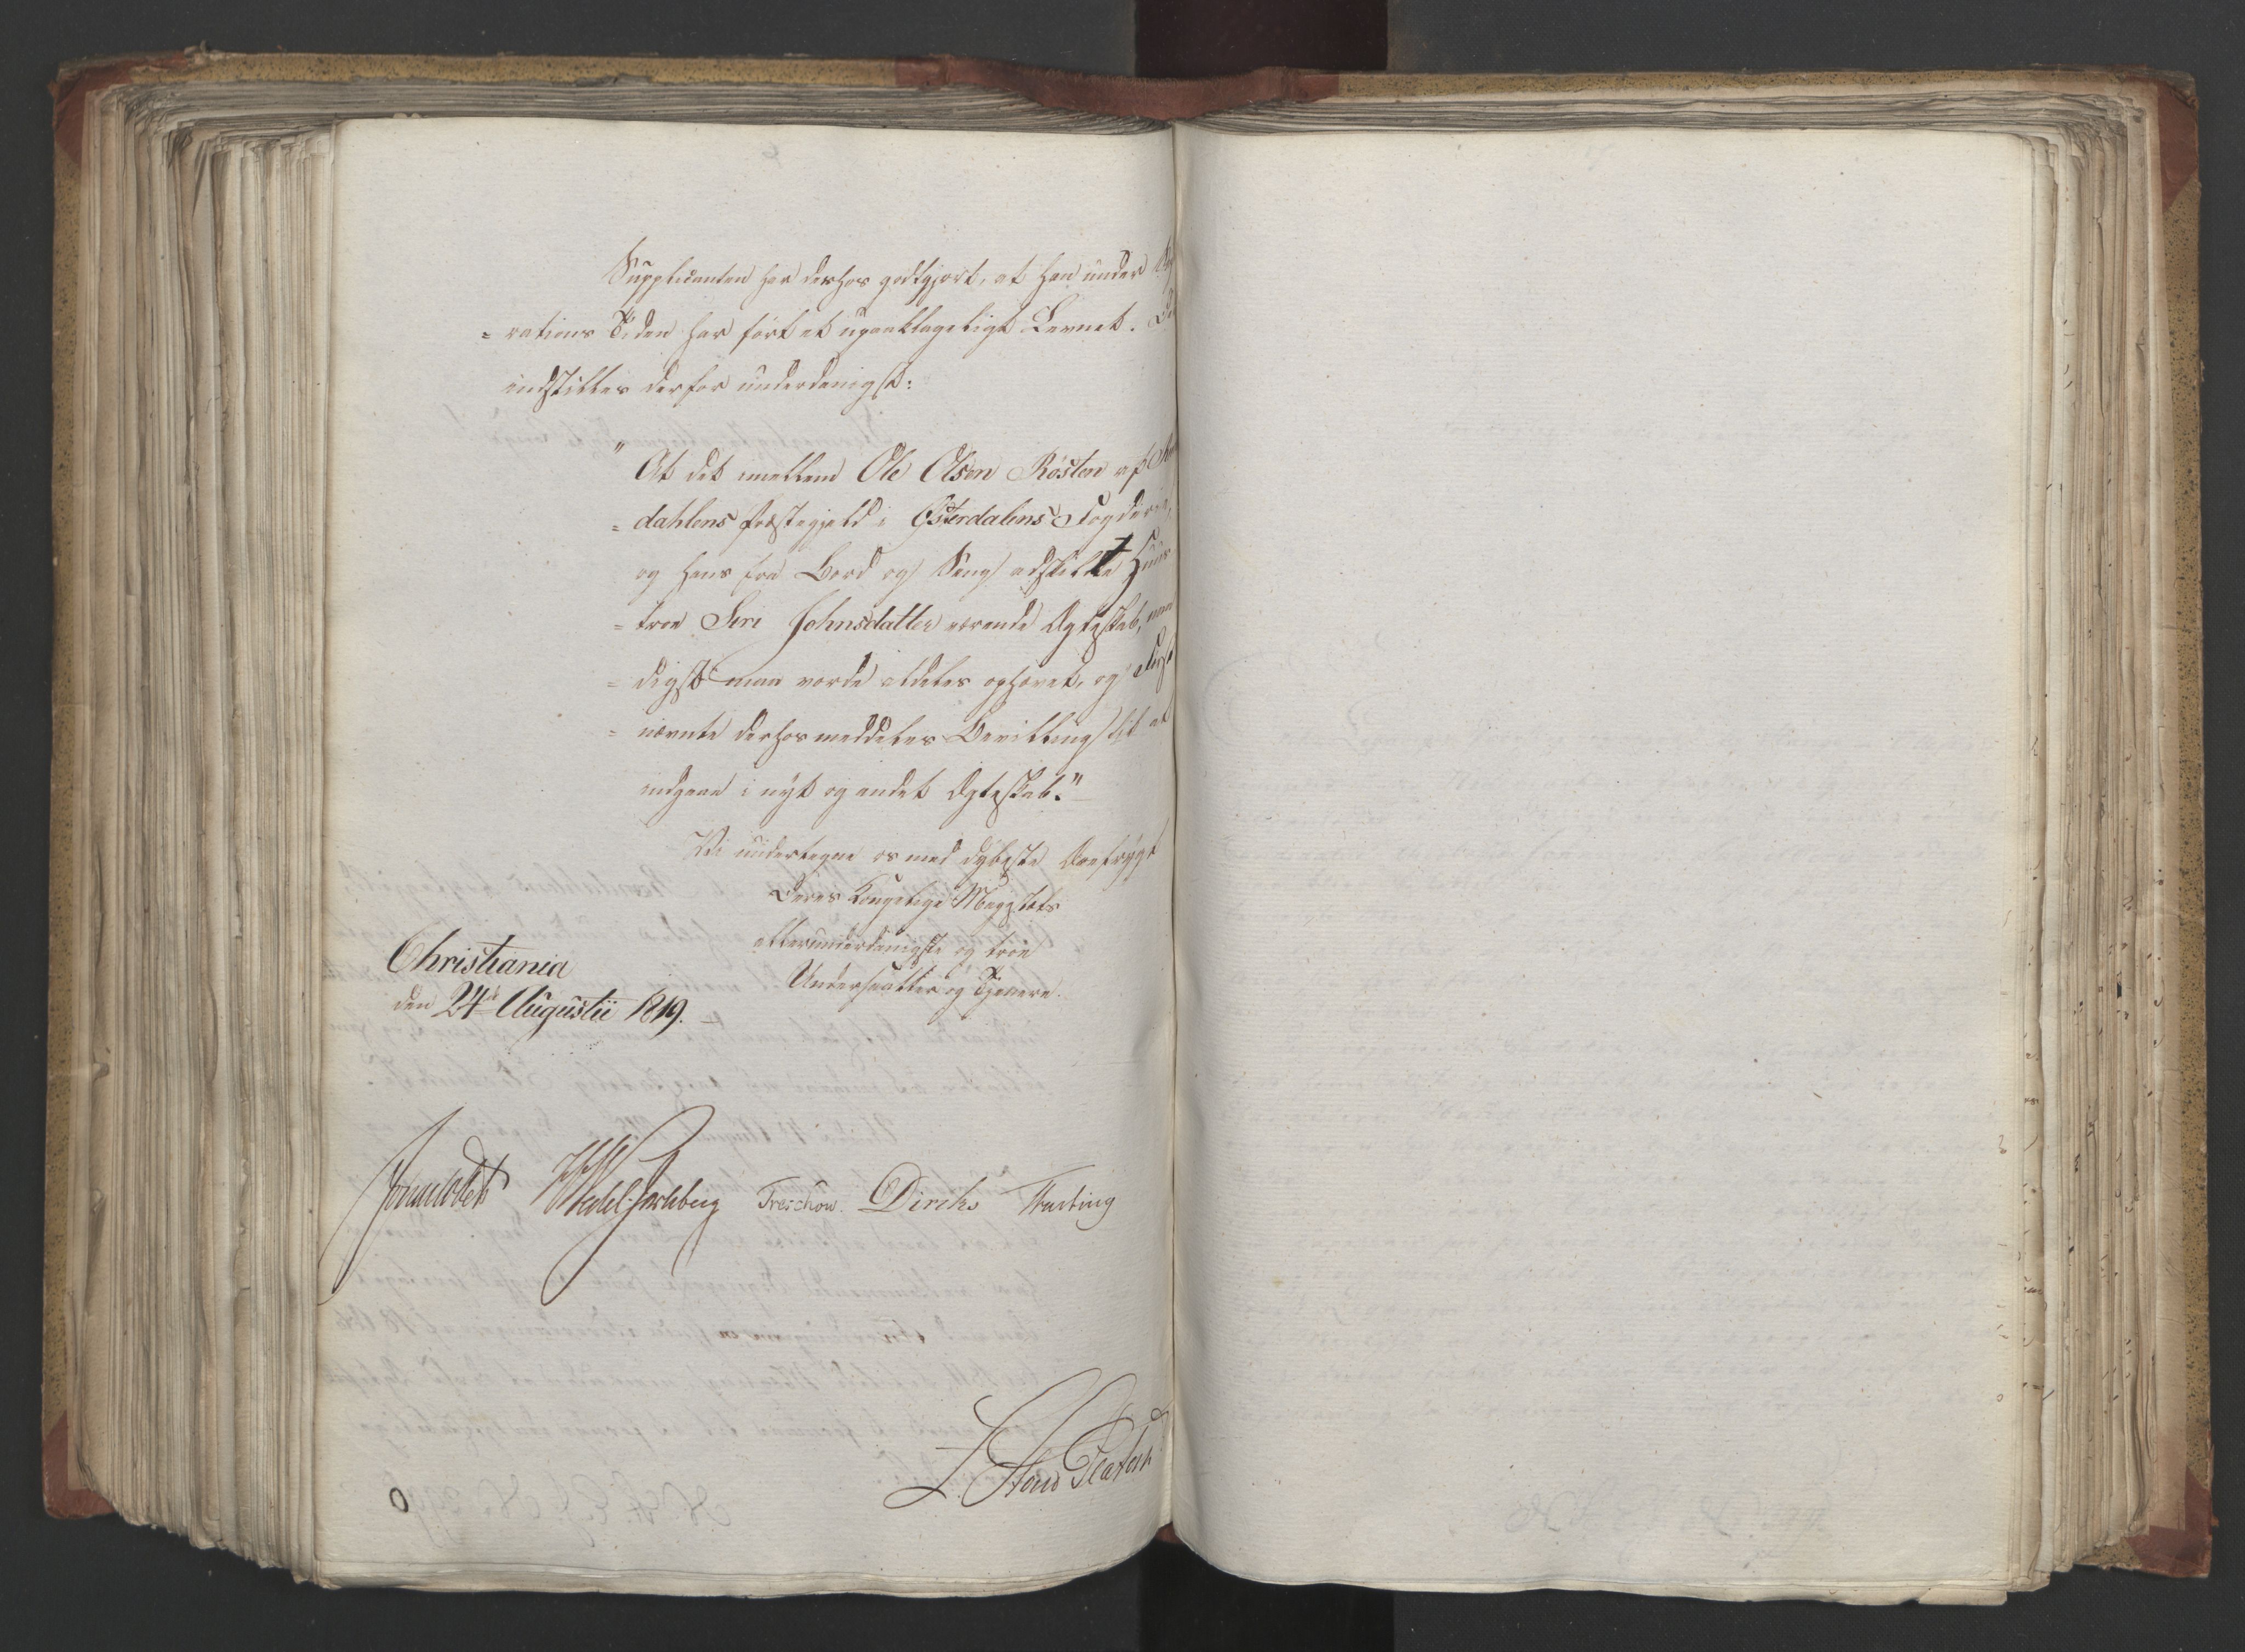 Supplicanten har derhos godtgjort, at han under
=rations Tiden har ført et upaaklageligt Levnet.
indstilles derfor underdanigst:
"At det imellem Ole Olsen Røsten af
=dahlens Præstegjeld i Østerdalens Fogderie,
og hans fra Bord og Seng adskilte Huus
=troe Siri Johnsdatter værende Ægteskab, naa
=digst maa vorde aldeles ophævet, og Først
=nævnte derhos meddeles Bevilling til at
indgaae i nyt og andet Ægteskab."
Vi undertegne os med dybeste Ærefrygt
Deres Kongelige Majestæts
allerunderdanigste og troe
Undersaatter og Tjenere.
Christiania
den 24de Augustii 1819.
Sommerfeldt Wedel Jarlsberg Treschow. Diricks Fasting